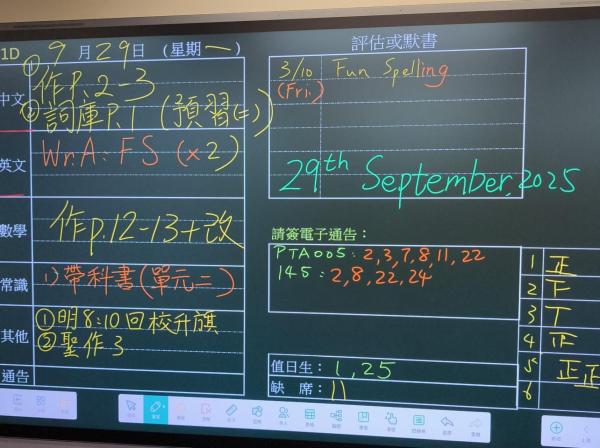 1D 9月29日 (星期一)
中文 ①作P.2-3
②詞庫P.1 (預習(二))
英文 Wr.A: FS (x2)
數學 作p.12-13+改
常識 1) 帶科書(單元二)
其他 ①明8:10回校升旗
②聖作3
通告
評估或默書
3/10 Fun Spelling
(Fri.)
29th September, 2025
請簽電子通告：
PTA005: 2,3,7,8,11,22
145: 2,8,22,24
值日生： 1,25
缺 席： 11
1 正
2
3
4
5 正正
6